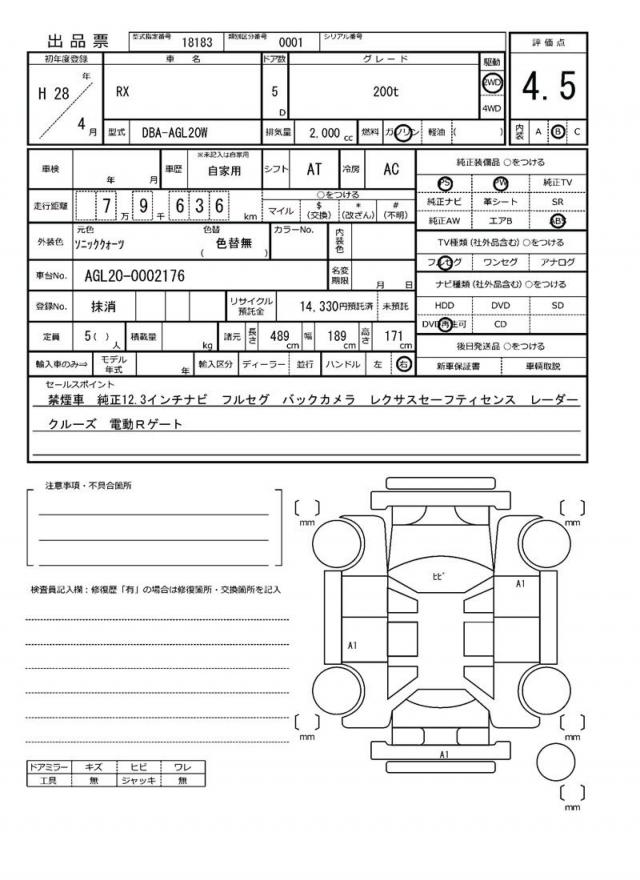 出品票 型式指定番号 18183 類別区分番号 0001 シリアル番号
初年度登録 車名 ドア数 グレード 駆動 評価点
H 28 年 4 月 RX 5 D 200t 2WD 4WD 4.5
型式 DBA-AGL20W 排気量 2,000 cc 燃料 ガソリン 軽油 ( ) 内装 A B C
車検 年 月 車歴 ※未記入は自家用 自家用 シフト AT 冷房 AC 純正装備品 ○をつける
PS PW 純正TV
走行距離 7 万 9 千 6 3 6 km ○をつける マイル $ (交換) * (改ざん) # (不明) 純正ナビ 革シート SR
純正AW エアB ABS
外装色 元色 ソニッククォーツ 色替 ( 色替無 ) カラーNo. 内装色 TV種類 (社外品含む) ○をつける
フルセグ ワンセグ アナログ
車台No. AGL20-0002176 名変期限 月 日 ナビ種類 (社外品含む) ○をつける
登録No. 抹消 リサイクル預託金 14,330円預託済 未預託 HDD DVD SD
DVD再生可 CD
定員 5( ) 人 積載量 kg 諸元 長さ 489 cm 幅 189 cm 高さ 171 cm 後日発送品 ○をつける
輸入車のみ⇒ モデル年式 年 輸入区分 ディーラー 並行 ハンドル 左 右 新車保証書 車輌取説
セールスポイント
禁煙車 純正12.3インチナビ フルセグ バックカメラ レクサスセーフティセンス レーダー
クルーズ 電動Rゲート
注意事項・不具合箇所
検査員記入欄：修復歴「有」の場合は修復箇所・交換箇所を記入
mm mm
ヒビ A1
A1
mm mm
A1
mm
ドアミラー キズ ヒビ ワレ
工具 無 ジャッキ 無